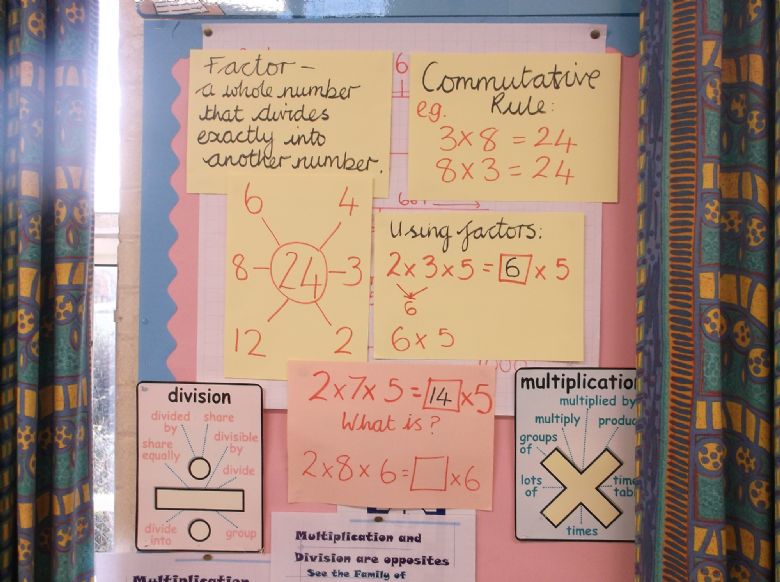 Factor –
a whole number
that divides
exactly into
another number.
Commutative
Rule:
eg.
3 x 8 = 24
8 x 3 = 24
6 4
8 24 3
12 2
Using factors:
2 x 3 x 5 = 6 x 5
6
6 x 5
2 x 7 x 5 = 14 x 5
What is?
2 x 8 x 6 = x 6
division
divided
by
share
share
equally
divisible
by
divide
divide
into
group
multiplication
multiplied by
multiply
produc
groups
of
lots
of
time
tabl
times
Multiplication and
Division are opposites
See the Family of
Multiplication